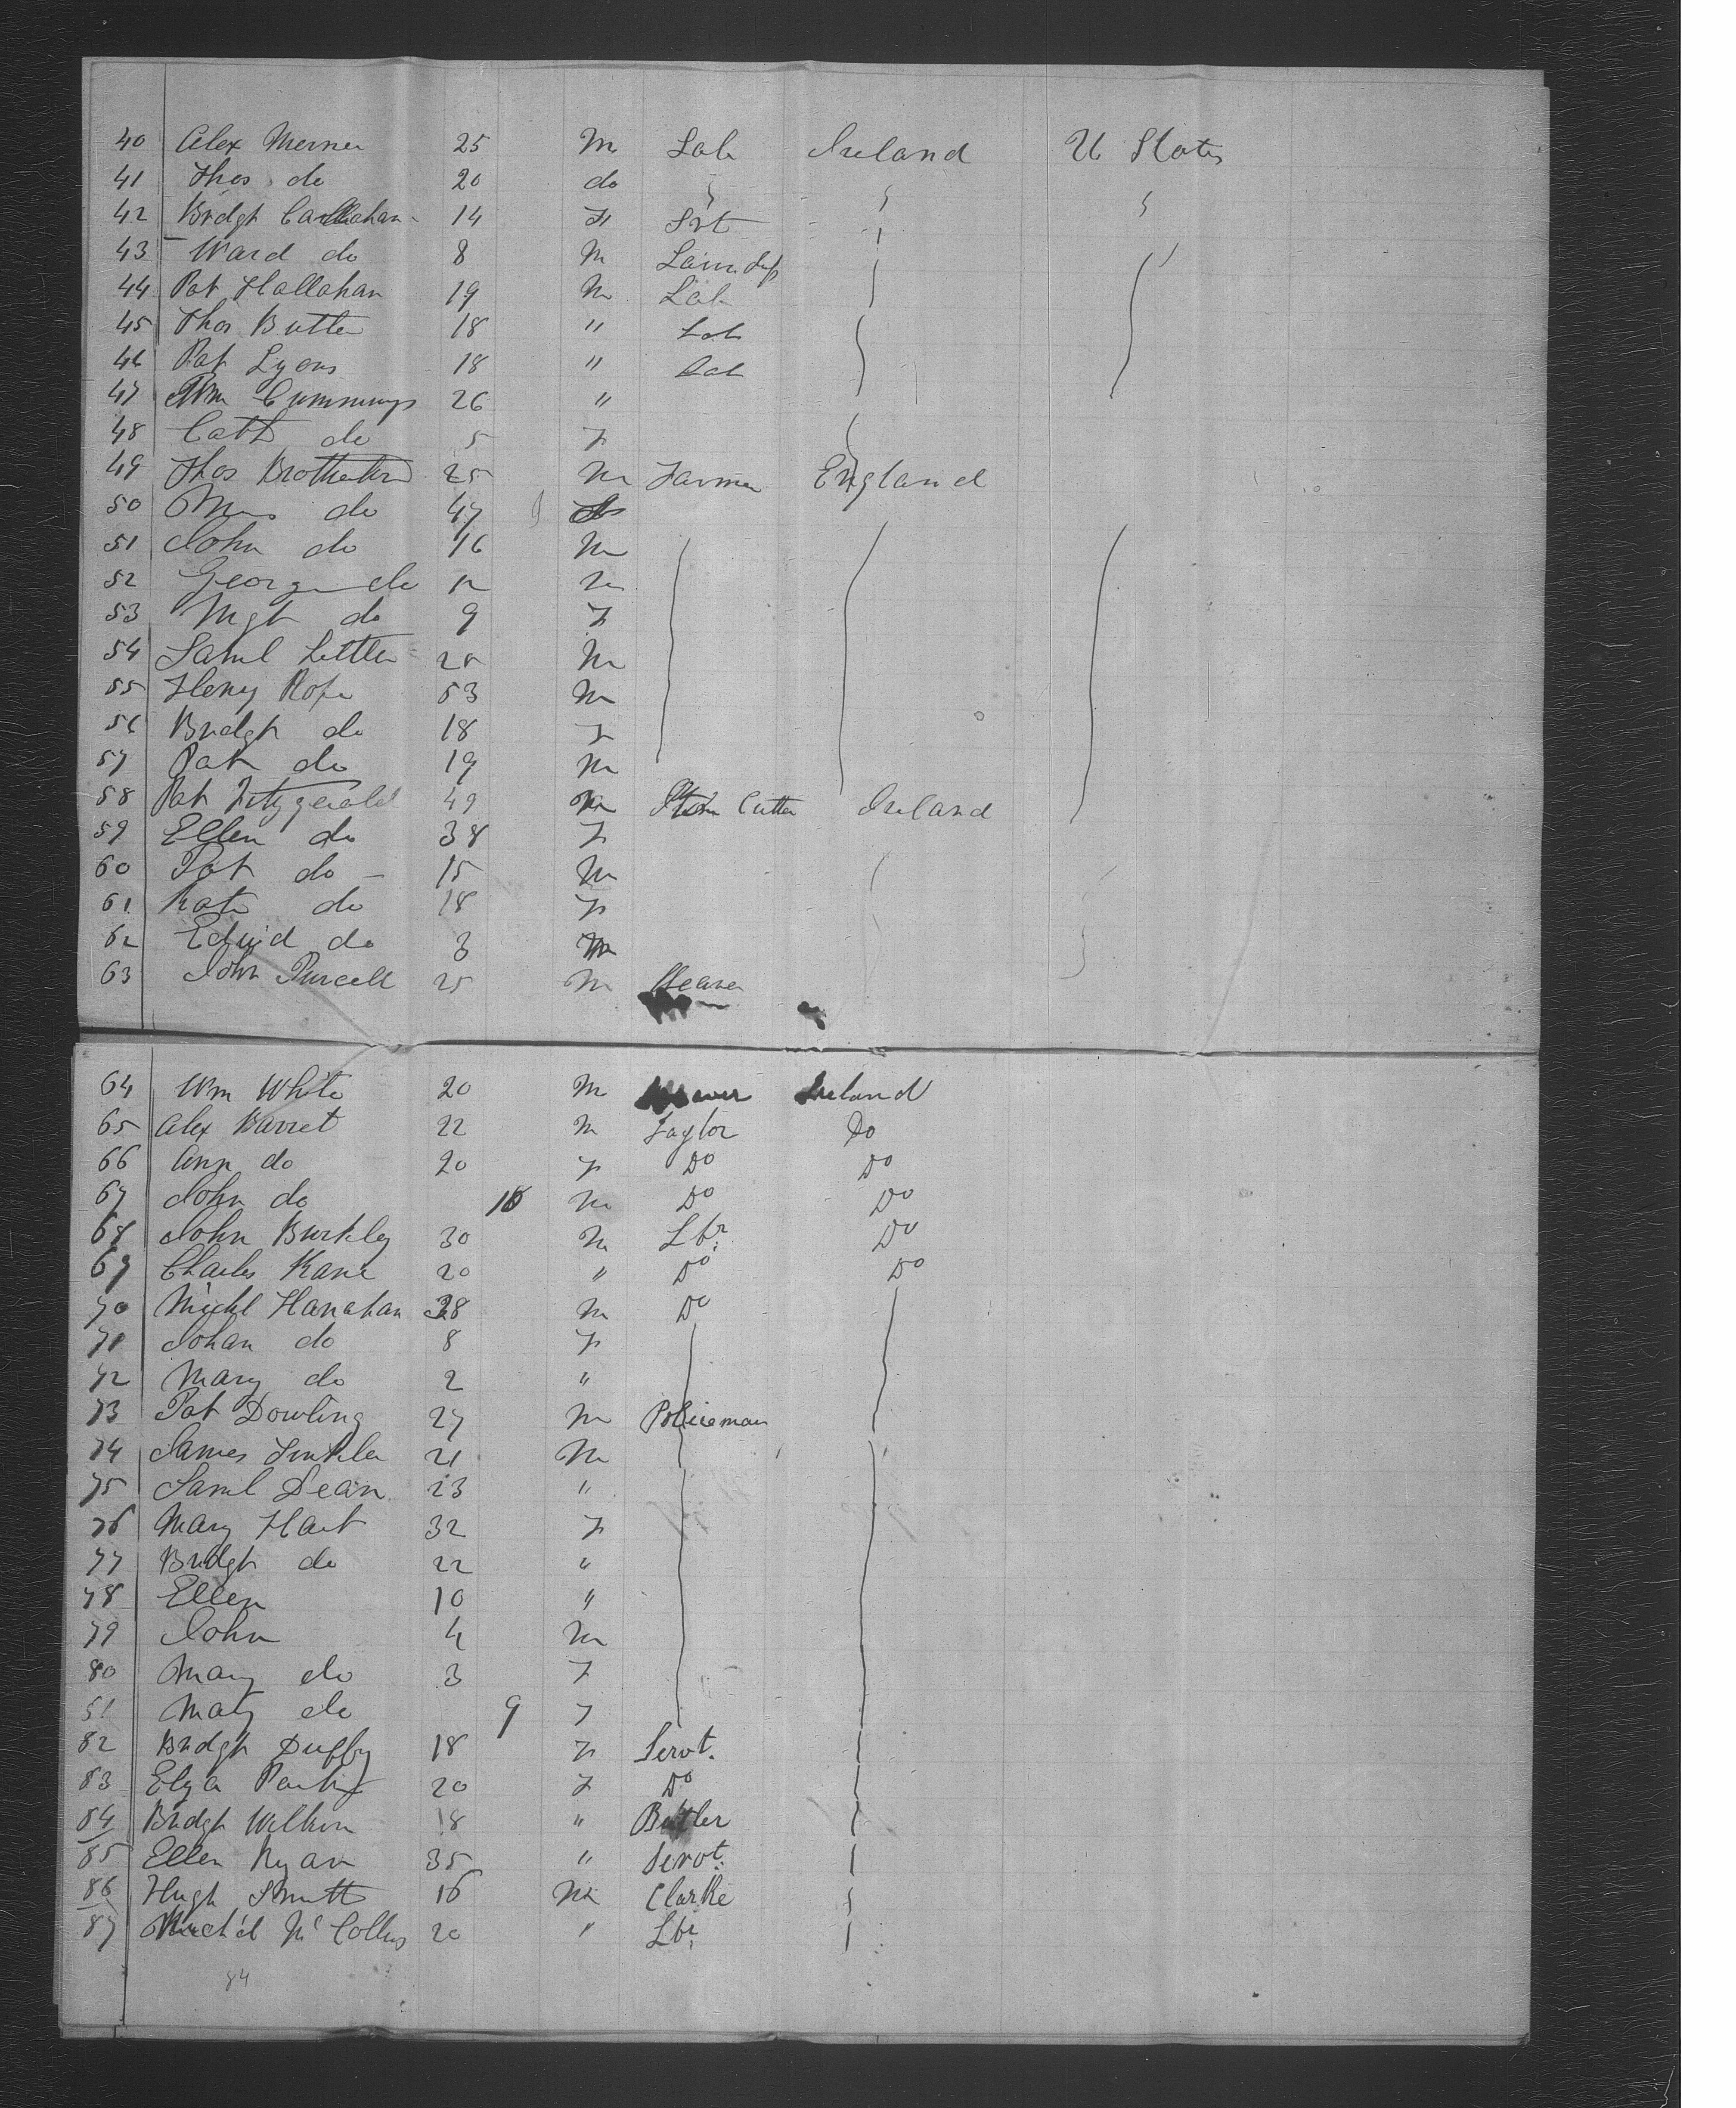 40 Alex Merner 25 M Lab Ireland U States
41 Thos do 20 do
42 Bridgt Callahan 14 F Svt
43 Ward do 8 M
44 Pat Hallahan 19 M Lab
45 Thos Butler 18 " Lab
46 Pat Lyons 18 " Lab
47 Wm Cummings 26 "
48 Cath do 5 F
49 Thos 25 M Farmer England
50 Mrs do 47
51 John do 16 M
52 George do 12 M
53 Mgt do 9 F
54 Saml Littler M
55 Heny Rope 53 M
56 Bridgt do 18 F
57 Pat do 19 M
58 Pat Fitzgerald 49 M Stone Cutter Ireland
59 Ellen do 38 F
60 Pat do - 15 M
61 Kate do 18 F
62 Edwd do 3 M
63 John Purcell 25 M
64 Wm White 20 M Ireland
65 Alex Barret 22 M Taylor Do
66 Ann do 20 F Do Do
67 John do 10 M Do Do
68 John Burkley 30 M Lbr Do
69 Charles Kane 20 " Do Do
70 Michl Hanahan 38 M Do
71 Johan do 8 F
72 Mary do 2 "
73 Pat Dowling 27 M Policeman
74 James 21 M
75 Saml Dean 23 "
76 Mary Hart 32 F
77 Bridgt do 22 "
78 Ellen 10 "
79 John 4 M
80 Mary do 3 F
51 Maty do 9 F
82 Bridgt Duffy 18 F Servt.
83 Elza 20 F Do
84 Bridgt 18 " Butler
85 Ellen Ryan 35 " Servt.
86 Hugh Smith 16 M Clarke
87 Mich'd Mc Collus 20 " Lbr
84